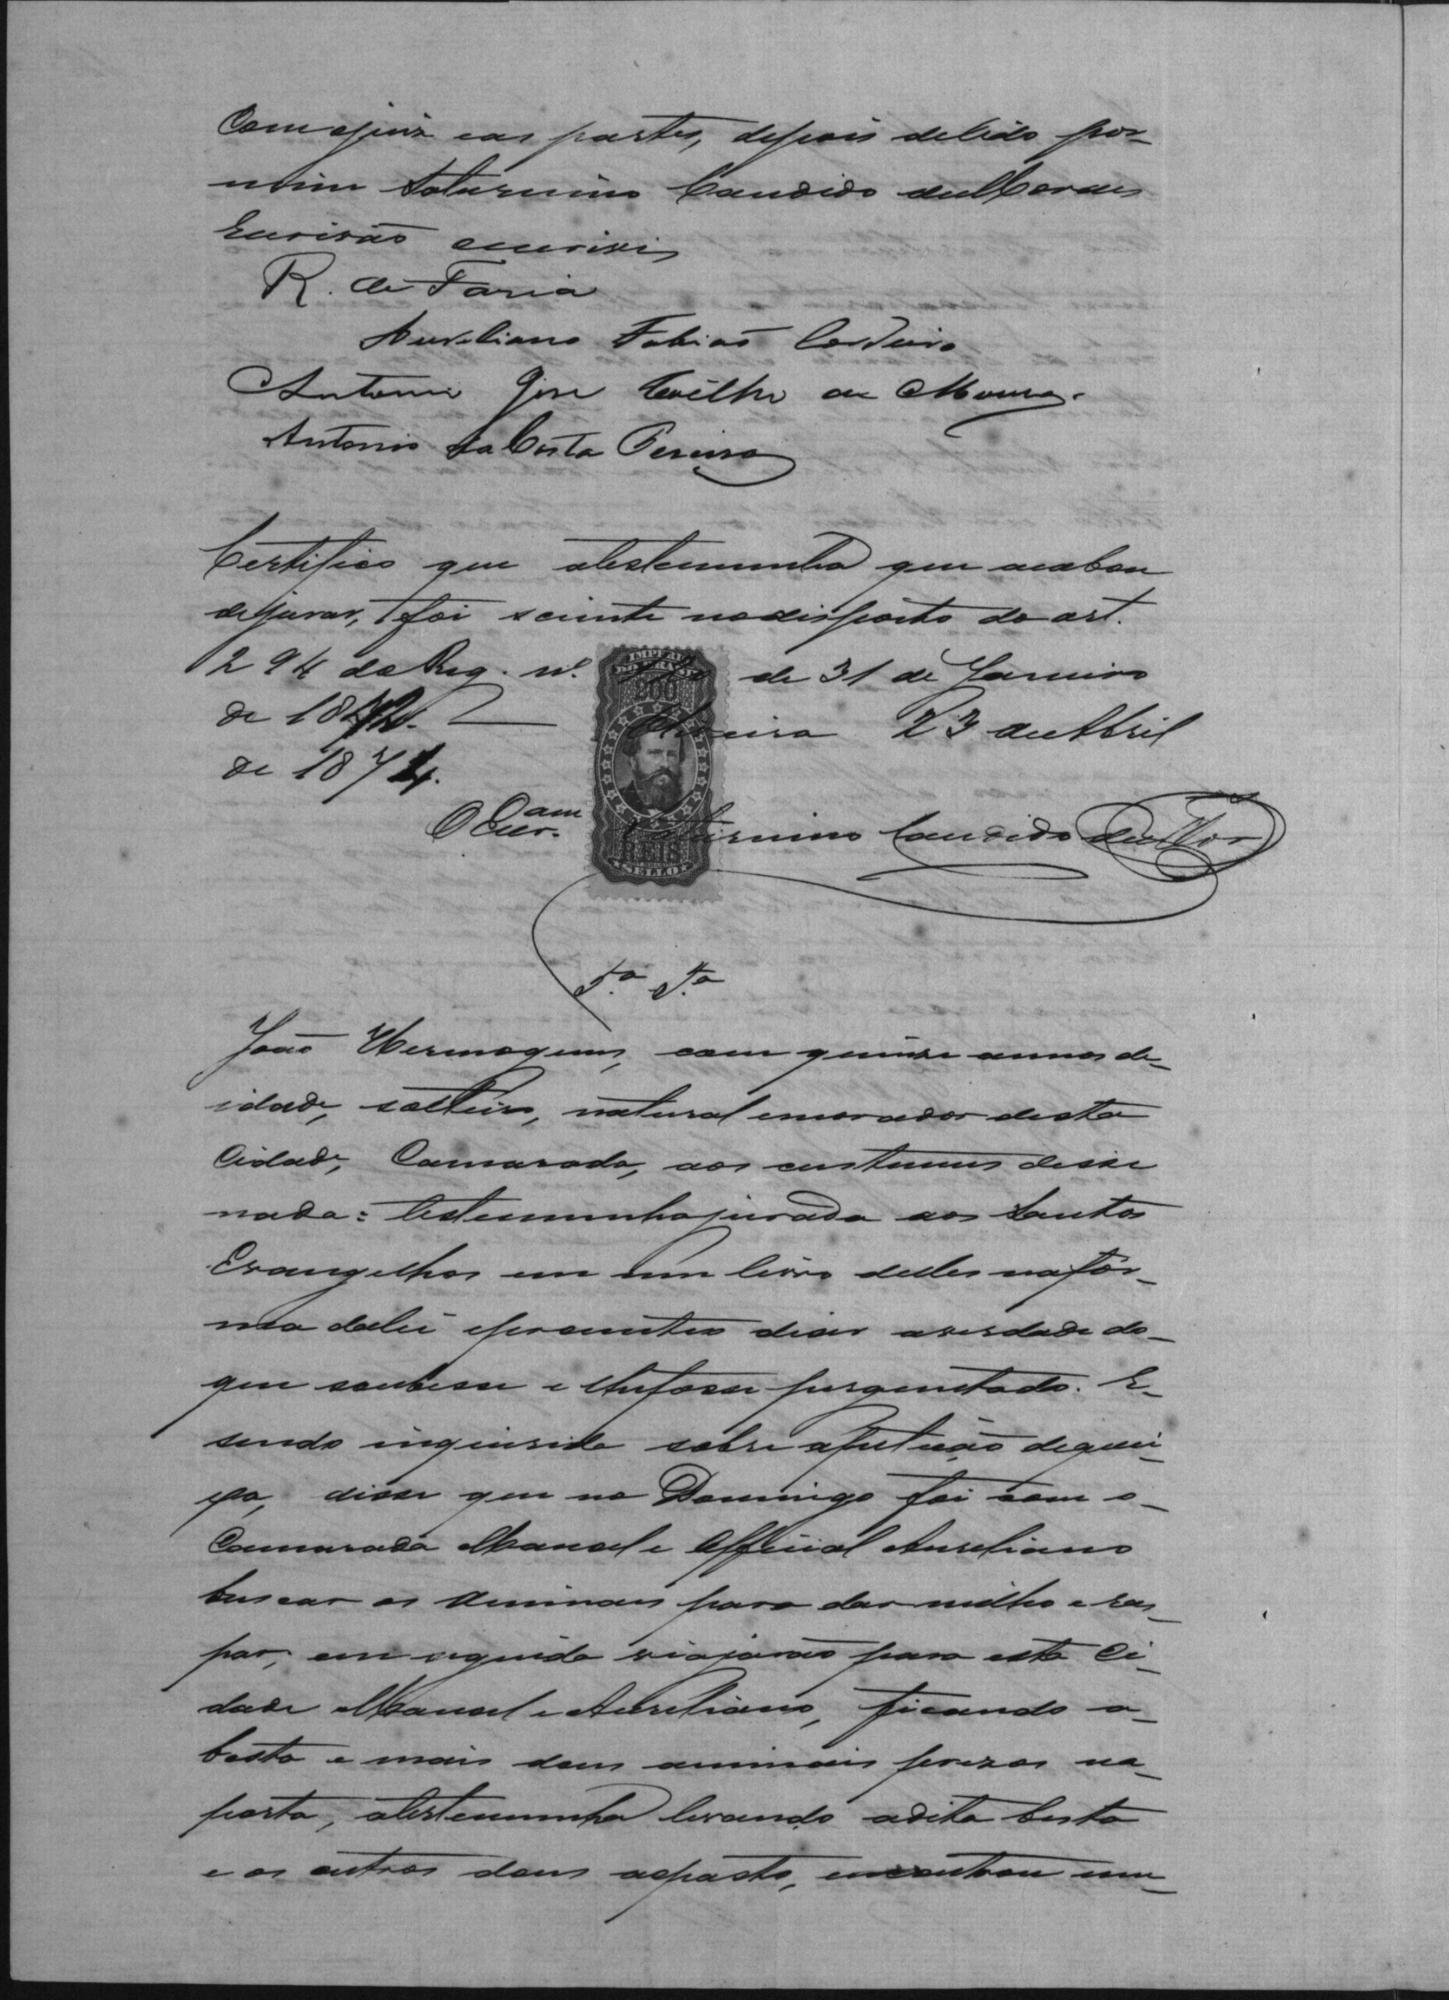 Com ojuiz eas partes, depois delido por
mim Saturnino Candido deMoraes
Escrivão escrivi
R. de Faria
Aureliano Fabiaõ Cordeiro
Antonio José Coêlho de Moura.
Antonio da Costa Pereira
Certifico que atestemunha que acabou
dejurar, foi sciente nodisposto do art.
294 do Reg. nº. 120 de 31 de Janeiro
de 1842. Oliveira 23 deAbril
de 1874.
O Escr.am Saturnino Candido deMor
IMPERIO
DO BRASIL
200
REIS
SELLO
5.ª T.ª
João Hermogenes, com quinse annos de
idade, solteiro, natural emorador desta
Cidade, Camarada, aos custumes disse
nada: testemunhajurada aos Santos
Evangelhos em um livro delles nafór-
ma dalei eprometteo diser averdade do
que soubesse e lhefosse perguntado. E
sendo inquirido sobre apetição dequei-
xa, disse que no Domingo foi com o
Camarada Manoel e Official Aureliano
buscar os animais para dar milho e ras-
par, em seguida viajaraõ para esta Ci-
dade Manoel e Aureliano, ficando a
besta e mais dous animais prezos na
porta, atestemunha levando adita besta
e os outros dous aopasto, encontrou um